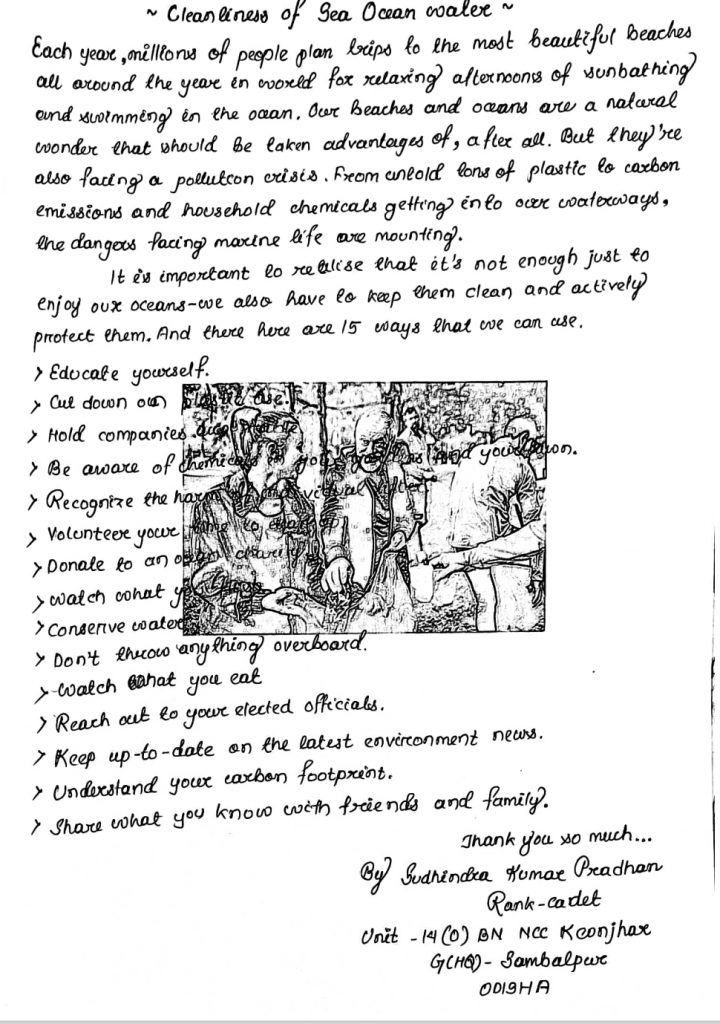 ~ Cleanliness of Sea Ocean water ~
Each year, millions of people plan trips to the most beautiful Beaches
all around the year in world for relaxing afternoons of sunbathing
and swimming in the ocan. Our Beaches and oceans are a natural
wonder that should be taken advantages of, after all. But they're
also facing a pollution crisis. From untold tons of plastic to carbon
emissions and household chemicals getting into our waterways,
the dangers facing marine life are mounting.
It is important to realise that it's not enough just to
enjoy our oceans-we also have to keep them clean and actively
protect them. And there here are 15 ways that we can use.
> Educate yourself.
> Cut down on plastic use.
> Hold companies
> Be aware of chemicals in your and your
> Recognize the
> Volunteer your time to
> Donate to an ocean charity
> Watch what you
> Conserve water
> Don't throw anything overboard.
> Watch what you eat
> Reach out to your elected officials.
> Keep up-to-date on the latest environment news.
> Understand your carbon footprint.
> Share what you know with friends and family.
Thank you so much...
By Sudhindra Kumar Pradhan
Rank-cadet
Unit - 14(O) BN NCC Keonjhar
G(HQ)- Sambalpur
ODISHA